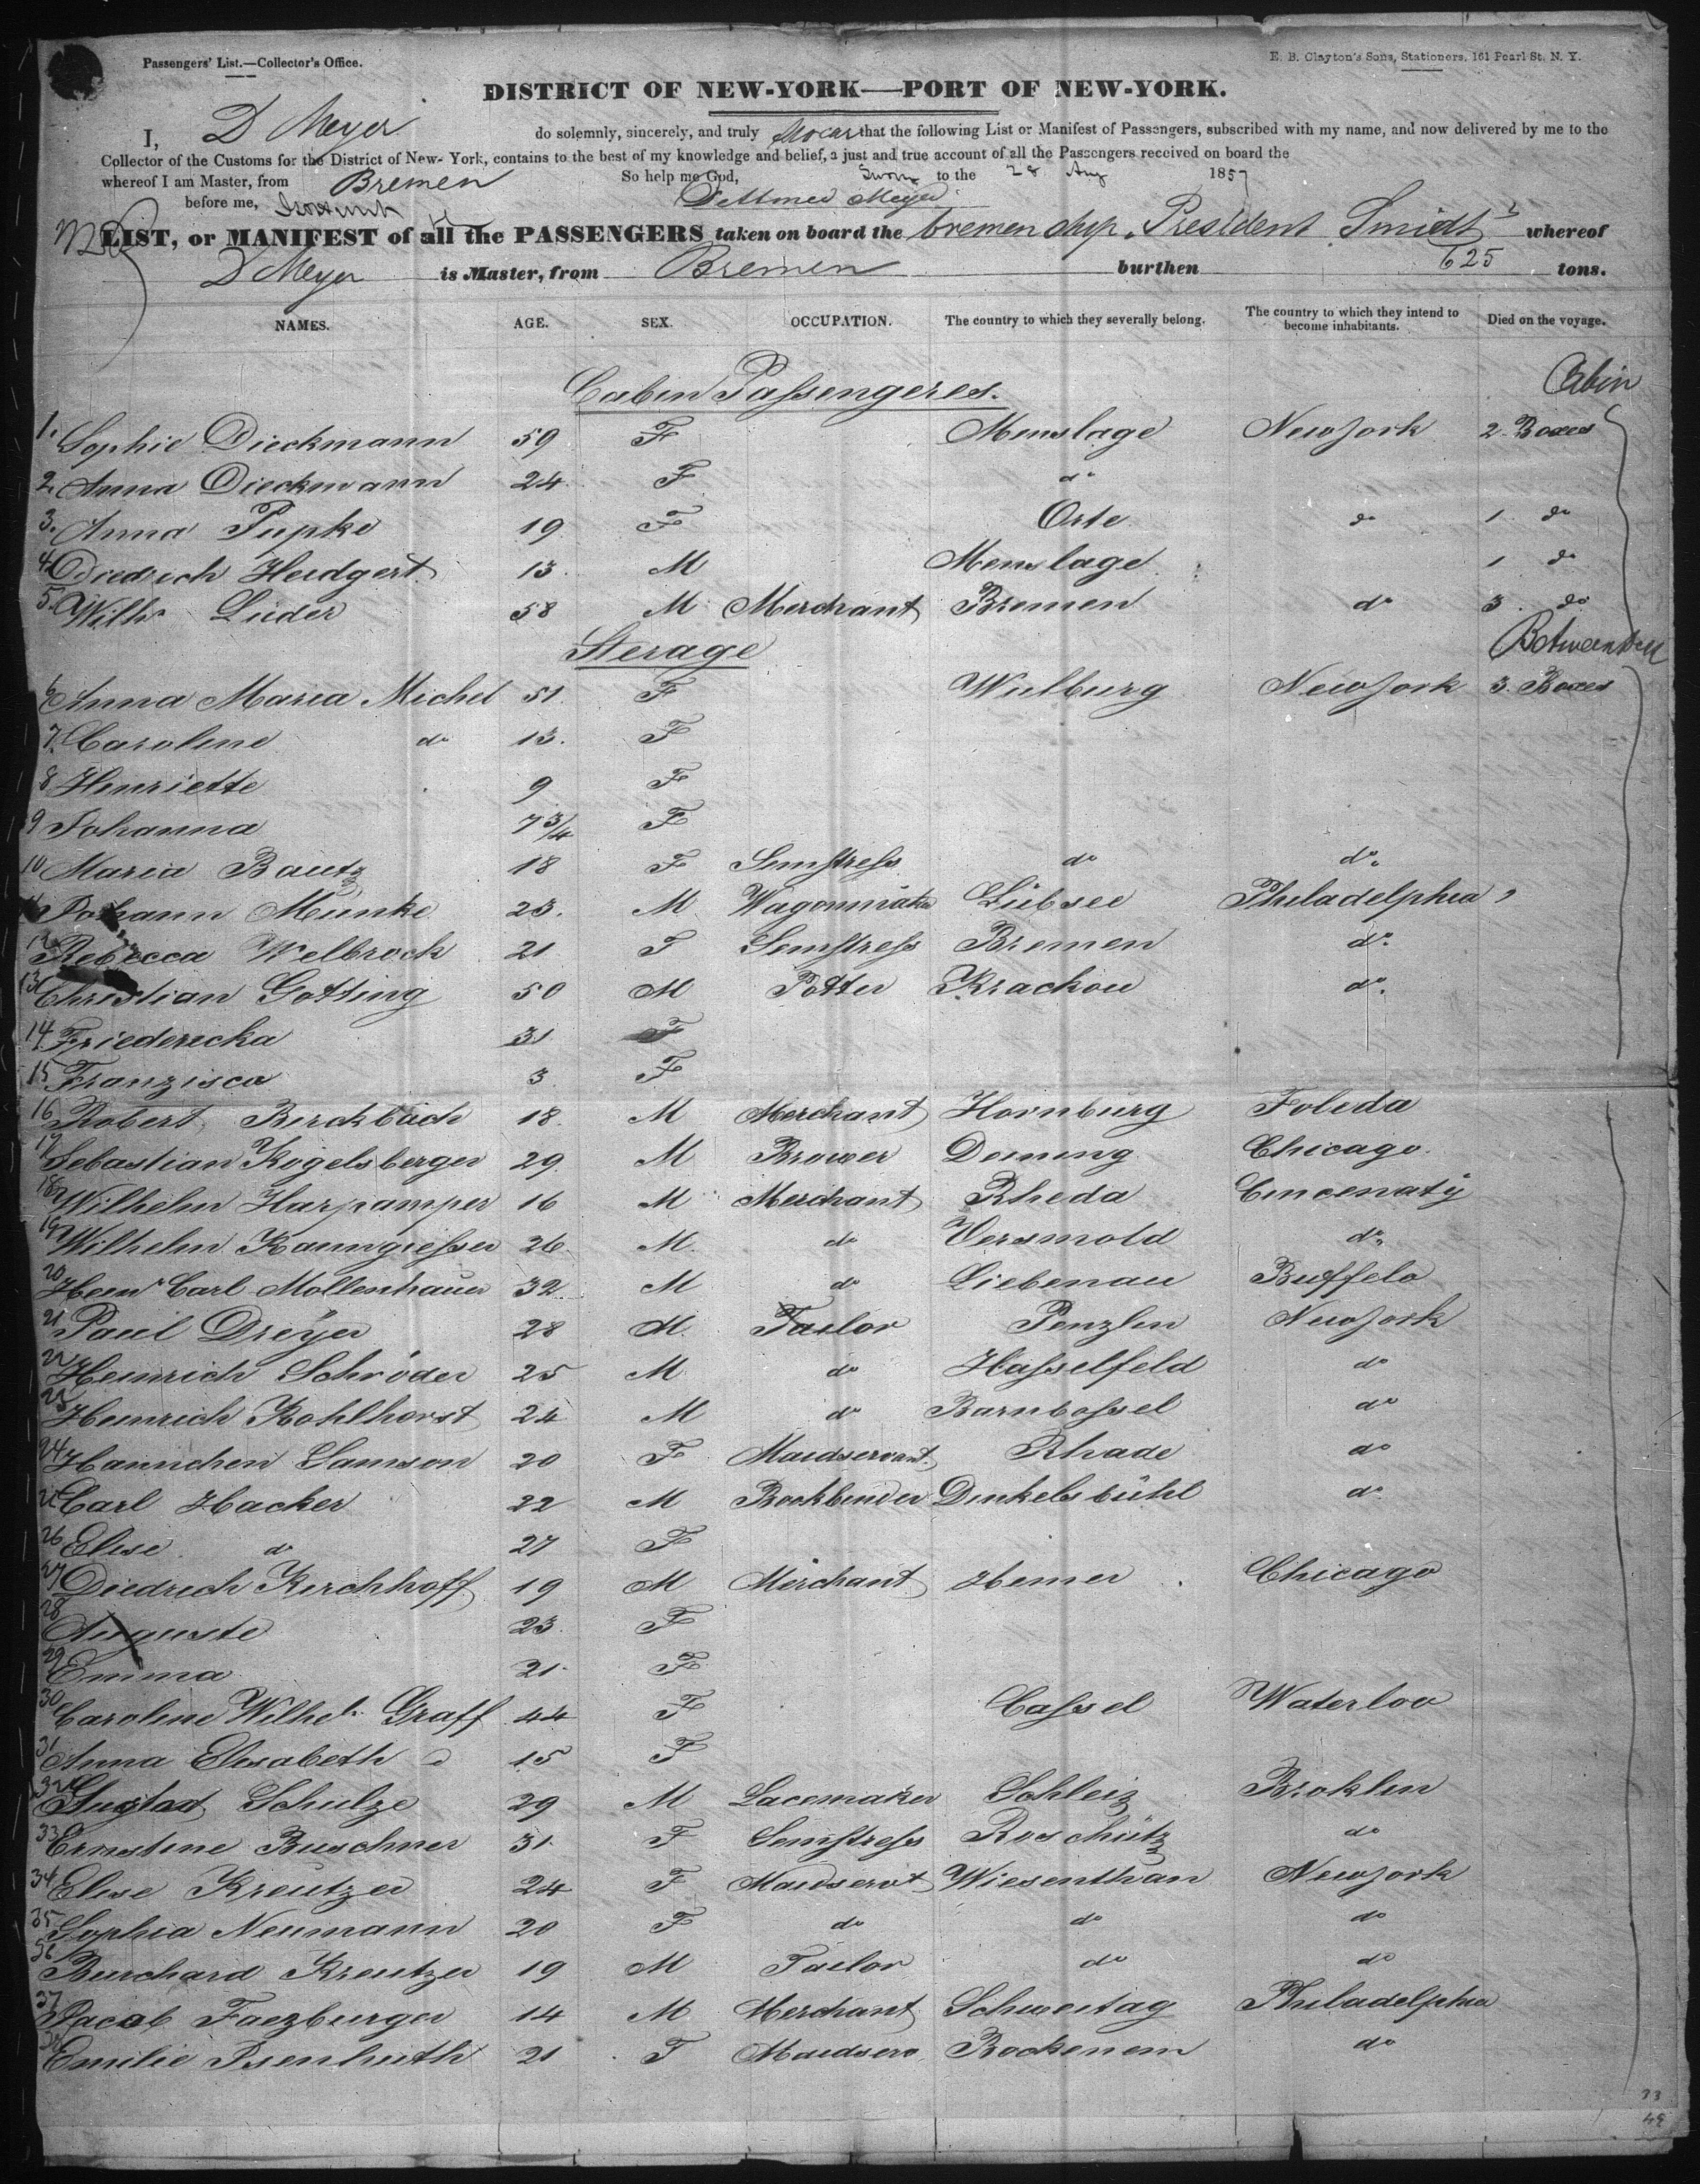 Passengers' List.—Collector's Office.
E. B. Clayton's Sons, Stationers, 161 Pearl St. N. Y.
DISTRICT OF NEW-YORK—PORT OF NEW-YORK.
I, D Meyer do solemnly, sincerely, and truly swear that the following List or Manifest of Passengers, subscribed with my name, and now delivered by me to the
Collector of the Customs for the District of New-York, contains to the best of my knowledge and belief, a just and true account of all the Passengers received on board the
whereof I am Master, from Bremen So help me God, Sworn to the 28 Aug 1857
before me, Dettmer Meyer
LIST, or MANIFEST of all the PASSENGERS taken on board the bremen ship President Smidt whereof
D Meyer is Master, from Bremen burthen 625 tons.
NAMES. AGE. SEX. OCCUPATION. The country to which they severally belong. The country to which they intend to become inhabitants. Died on the voyage.
Cabin Passengeres. Cabin
1. Sophie Dieckmann 59 F Menslage New York 2 Boxes
2. Anna Dieckmann 24 F do
3. Anna Pupke 19 F Orte do 1 do
4. Diedrich Heidgert 13 M Menslage 1 do
5. Wilh. Lüder 58 M Merchant Bremen do 3 do
Sterage Betweendeck
6 Anna Maria Michel 51 F Wulburg New York 3 Boxes
7. Caroline do 13. F
8 Henriette 9 F
9 Johanna 7 3/4 F
10 Maria Bautz 18 F Semstress do do.
11 Johann Munke 23. M Wagonmaker Lübsee Philadelphia
12 Rebecca Welbrock 21 F Semstress Bremen do.
13 Christian Gotting 50 M Potter Krackow do.
14 Friedericka 31 F
15 Franzisca 3 F
16 Robert Birckbach 18. M Merchant Hornburg Toleda
17 Sebastian Kogelsberger 29 M Brower Deming Chicago.
18 Wilhelm Harpamper 16 M Merchant Rheda Cincenaty
19 Wilhelm Kanngiesser 26. M. do Versmold do.
20 Hein. Carl Mollenhauer 32 M do Liebenau Buffelo
21 Paul Dreyer 28 M. Taelor Penzlin New York
22 Heinrich Schröder 25 M do Hasselfeld do
23 Heinrich Kohlhorst 24 M do Barnbossel do
24 Hannchen Samson 20 F Maidservant Rhade do
25 Carl Hacker 22 M Bookbender Dinkelsbühl do
26 Elise do 27 F
27 Diedrich Kirchhoff 19 M Merchant Hemer Chicago
28 Auguste 23. F
29 Emma 21. F
30 Caroline Wilhe. Graff 44 F Cassel Waterloo
31 Anna Elisabeth d 15 F
32 Gustad Schulze 29 M Lacemaker Schleiz Broklin
33 Ernstine Buschner 31. F Semstress Roschütz do
34 Elise Kreutzer 24 F Maidservt Wiesenthan New York
35 Sophia Neumann 20 F do do do
36 Burchard Kreutzer 19 M Taelor do do
37 Jacob Faezburger 14 M Merchant Schweitag Philadelphia
38 Emilie Isenhuth 21 F Maidserv Bockenem do